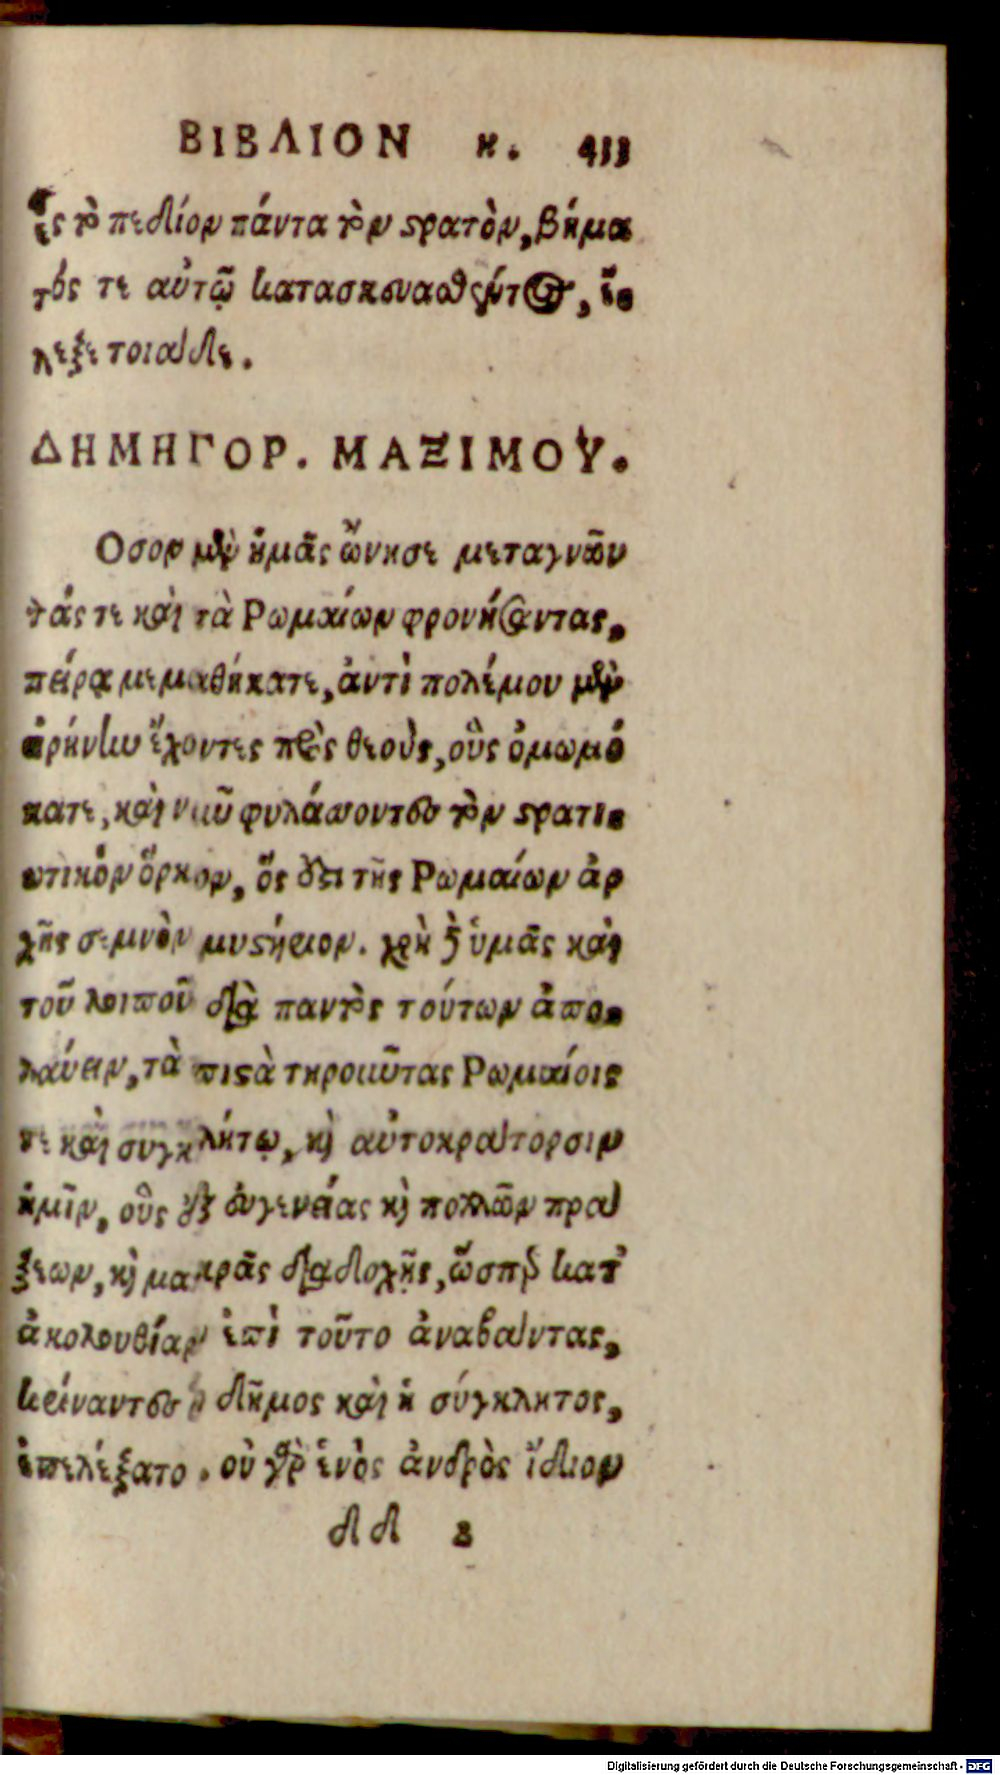 ΒΙΒΛΙΟΝ η. 433
ἐς τὸ πεδίον πάντα τὸν στρατὸν, βήμα
τός τε αὐτῷ κατασκευασθέντος, ἔ-
λεξε τοιάδε.
ΔΗΜΗΓΟΡ. ΜΑΞΙΜΟΥ.
Οσον μὲν ἡμᾶς ὤνησε μεταγνῶν
τάς τε καὶ τὰ Ρωμαίων φρονήσαντας,
πείρᾳ μεμαθήκατε, ἀντὶ πολέμου μὲν
εἰρήνην ἔχοντες πρὸς θεοὺς, οὓς ὀμωμό
κατε, καὶ νῦν φυλάττοντες τὸν στρατι-
ωτικὸν ὅρκον, ὅς ἐστι τῆς Ρωμαίων ἀρ
χῆς σεμνὸν μυστήριον. χρὴ δὲ ὑμᾶς καὶ
τοῦ λοιποῦ διὰ παντὸς τούτων ἀπο-
λαύειν, τὰ πιστὰ τηροῦντας Ρωμαίοις
τε καὶ συγκλήτῳ, καὶ αὐτοκράτορσιν
ἡμῖν, οὓς ἐξ εὐγενείας καὶ πολλῶν πρά
ξεων, καὶ μακρᾶς διαδοχῆς, ὥσπερ κατ'
ἀκολουθίαν ἐπὶ τοῦτο ἀναβάντας,
κρίναντες ὁ δῆμος καὶ ἡ σύγκλητος,
ἐπελέξατο. οὐ γὰρ ἑνὸς ἀνδρὸς ἴδιον
dd 3
Digitalisierung gefördert durch die Deutsche Forschungsgemeinschaft - DFG